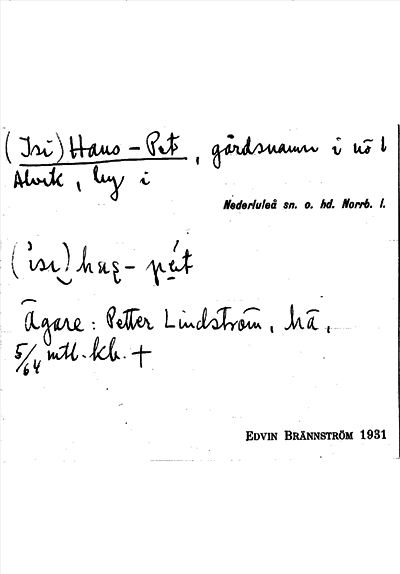 (Isi) Hans-Pets, gårdsnamn i nö l
Alvik, by i
Nederluleå sn. o. hd. Norrb. l.
Ägare: Petter Lindström, hä,
5/64 mtl. kb. +
EDVIN BRÄNNSTRÖM 1931